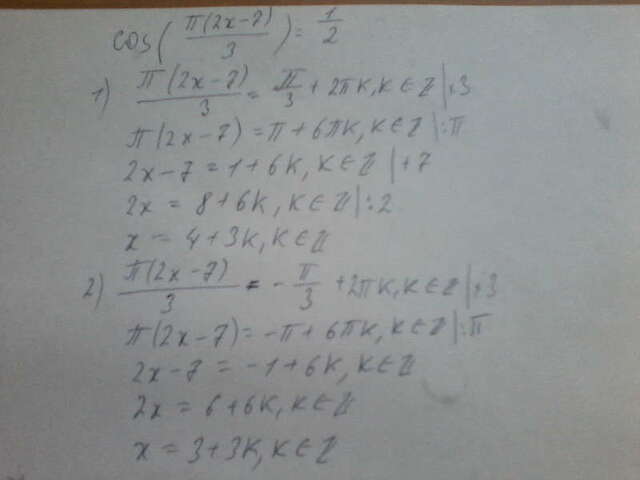 cos(π(2x-7)/3) = 1/2
1) π(2x-7)/3 = π/3 + 2πk, k ∈ Z |·3
π(2x-7) = π + 6πk, k ∈ Z |:π
2x-7 = 1 + 6k, k ∈ Z |+7
2x = 8 + 6k, k ∈ Z |:2
x = 4 + 3k, k ∈ Z
2) π(2x-7)/3 = -π/3 + 2πk, k ∈ Z |·3
π(2x-7) = -π + 6πk, k ∈ Z |:π
2x-7 = -1 + 6k, k ∈ Z
2x = 6 + 6k, k ∈ Z
x = 3 + 3k, k ∈ Z